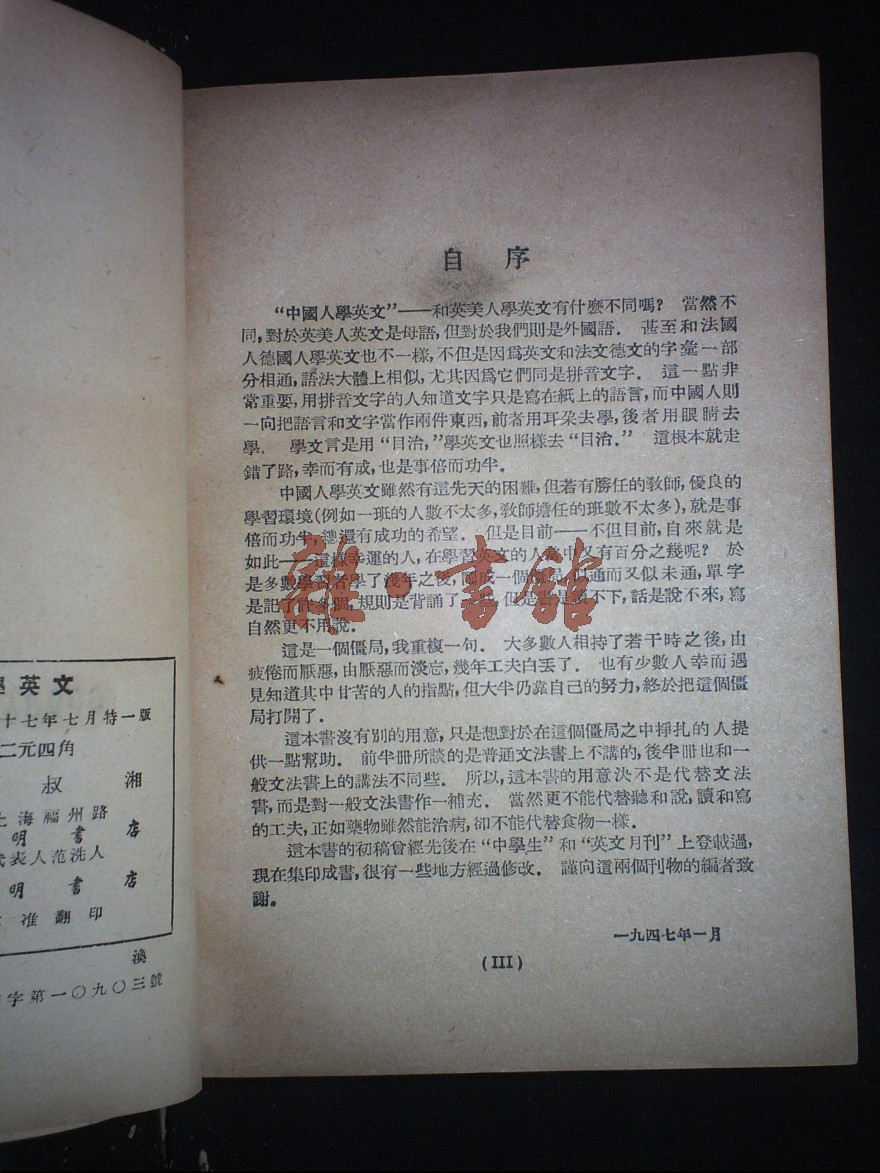 自序
“中國人學英文”——和英美人學英文有什麼不同嗎？ 當然不
同，對於英美人英文是母語，但對於我們則是外國語． 甚至和法國
人德國人學英文也不一樣，不但是因爲英文和法文德文的字彙一部
分相通，語法大體上相似，尤其因爲它們同是拼音文字． 這一點非
常重要，用拼音文字的人知道文字只是寫在紙上的語言，而中國人則
一向把語言和文字當作兩件東西，前者用耳朶去學，後者用眼睛去
學． 學文言是用“目治，”學英文也照樣去“目治．” 這根本就走
錯了路，幸而有成，也是事倍而功半．
中國人學英文雖然有這先天的困難，但若有勝任的敎師，優良的
學習環境(例如一班的人數不太多，敎師擔任的班數不太多)，就是事
倍而功半，總還有成功的希望． 但是目前——不但目前，自來就是
如此——這樣幸運的人，在學習英文的人當中又有百分之幾呢？ 於
是多數學習者學了幾年之後，成一個似通而又似未通，單字
是記了許多個，規則是背誦了，但是不下，話是說不來，寫
自然更不用說．
這是一個僵局，我重複一句． 大多數人相持了若干時之後，由
疲倦而厭惡，由厭惡而淡忘，幾年工夫白丟了． 也有少數人幸而遇
見知道其中甘苦的人的指點，但大半仍靠自己的努力，終於把這個僵
局打開了．
這本書沒有別的用意，只是想對於在這個僵局之中掙扎的人提
供一點幫助． 前半冊所談的是普通文法書上不講的，後半冊也和一
般文法書上的講法不同些． 所以，這本書的用意決不是代替文法
書，而是對一般文法書作一補充． 當然更不能代替聽和說，讀和寫
的工夫，正如藥物雖然能治病，卻不能代替食物一樣．
這本書的初稿曾經先後在“中學生”和“英文月刊”上登載過，
現在集印成書，很有一些地方經過修改． 謹向這兩個刊物的編者致
謝。
一九四七年一月
(III)
學英文
十七年七月特一版
二元四角
叔湘
上海福州路
明書店
代表人范洗人
明書店
准翻印
渙
字第一〇九〇三號
雜·書館